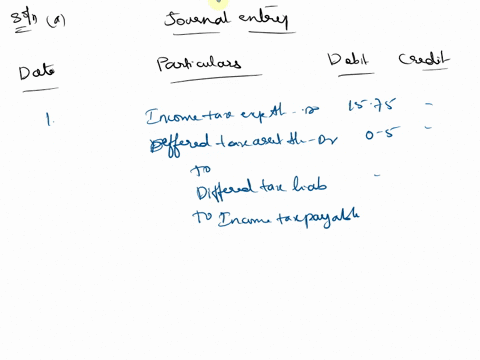 Soln (a) Journal entry
Date Particulars Debit Credit
1. Income tax exp A/c .. Dr 15.75 -
Deffered tax asset A/c - Dr 0.5 -
To
Differed tax liab -
To Income tax payable